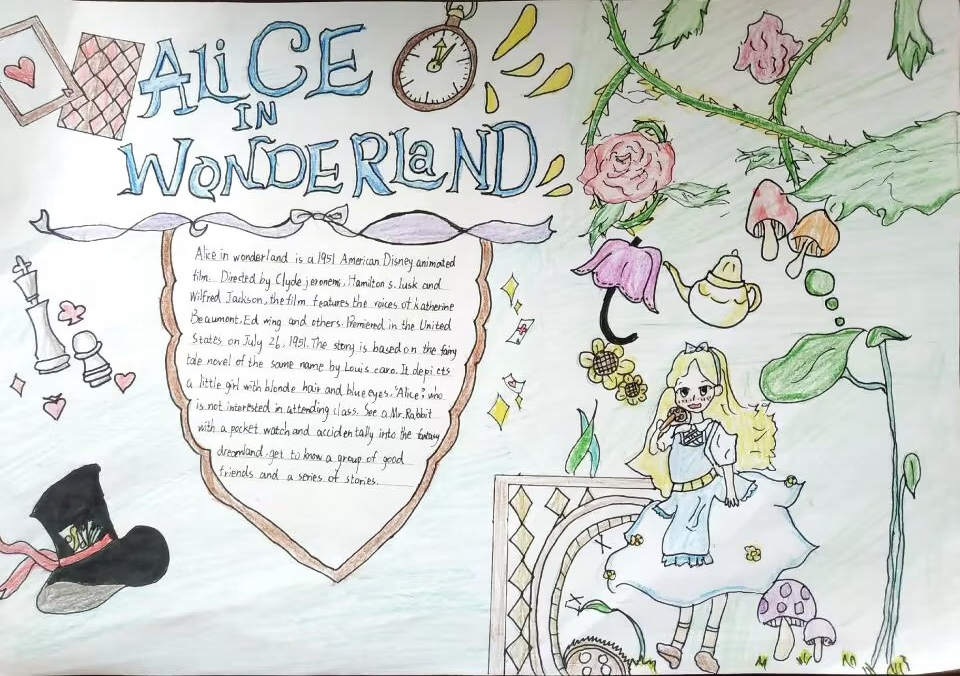 ALiCE
IN
WONDERLaND
Alice in wonderland is a 1951 American Disney animated
film. Directed by Clyde jeronems, Hamilton s. lusk and
Wilfred Jackson, the film features the voices of katherine
Beaumont, Ed wing and others. Premiered in the United
States on July 26, 1951. The story is based on the fairy
tale novel of the same name by Louis caro. It depi cts
a little girl with blonde hair and blue eyes, "Alice", who
is not interested in attending class. See a Mr. Rabbit
with a pocket watch and accidentally into the fantasy
dreamland. get to know a group of good
friends and a series of stories.